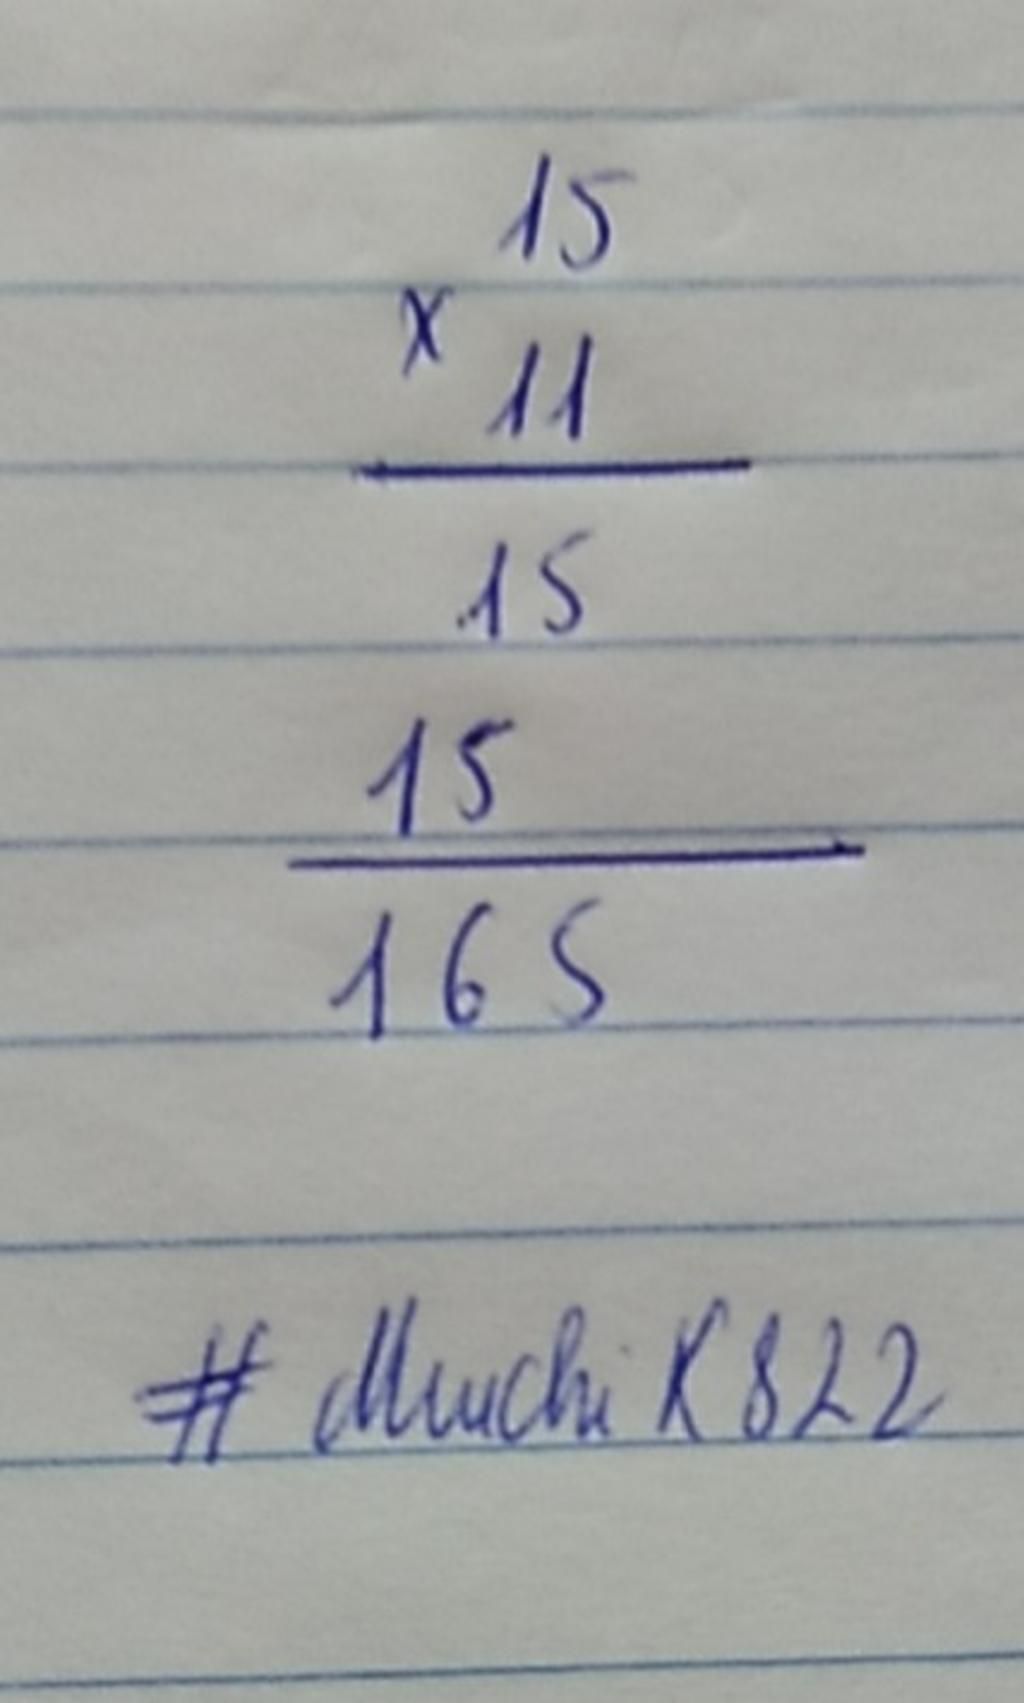 15
x
11
15
15
165
# Muchi K822